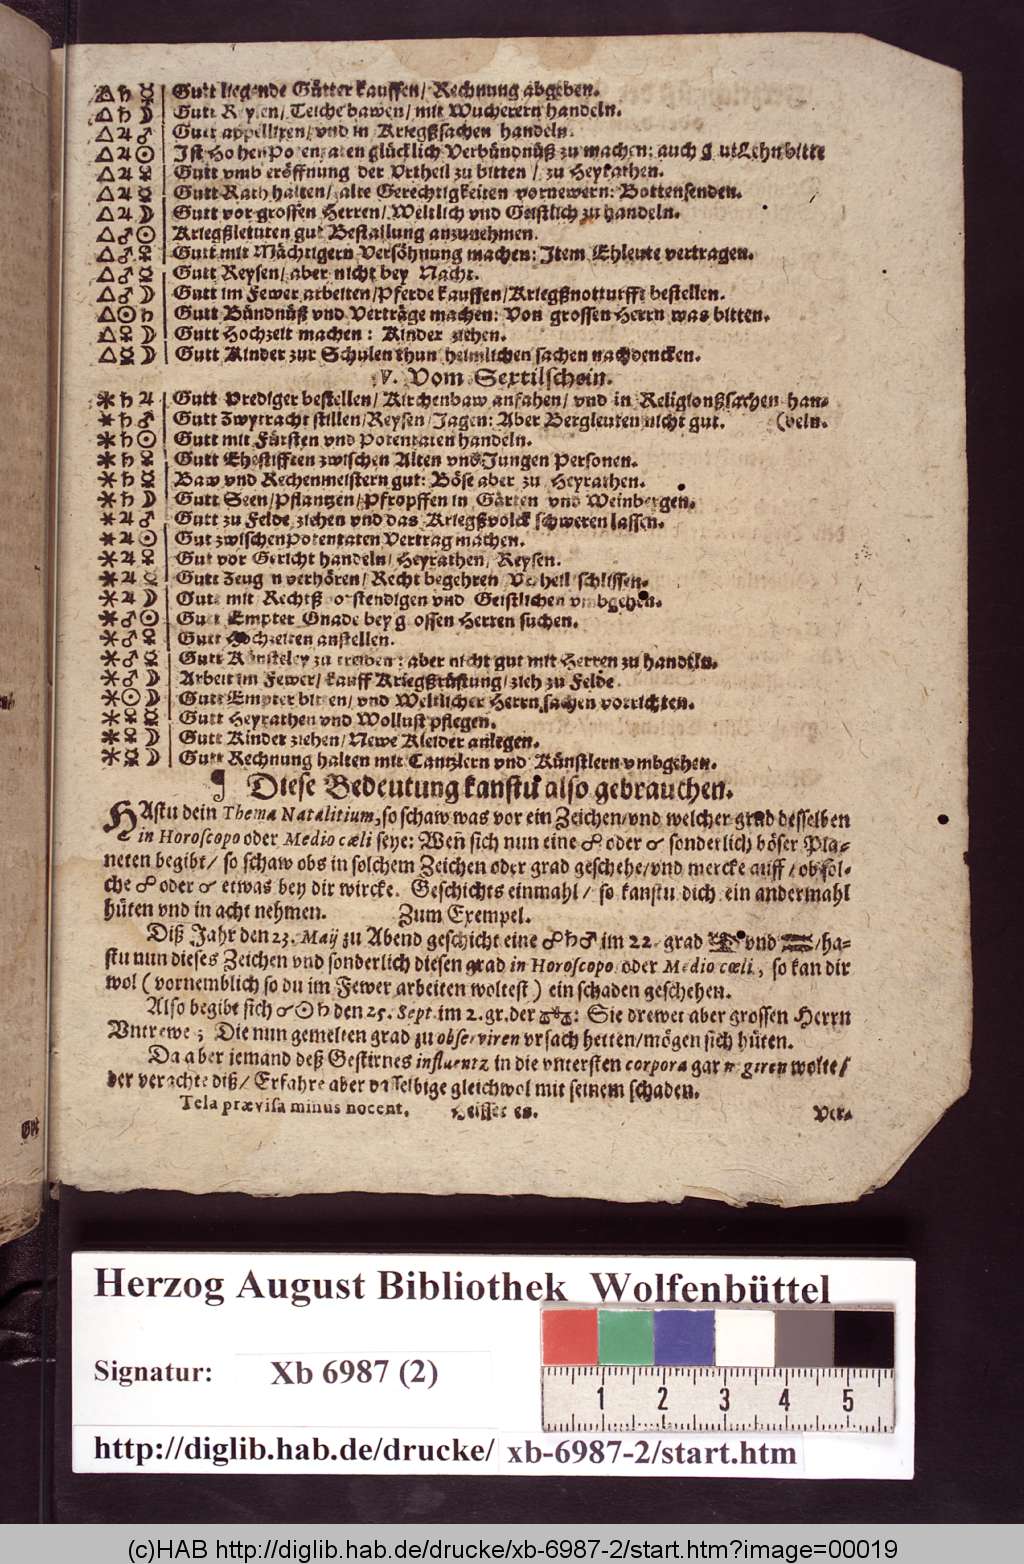 △ ♄ ☿ Gutt liegende Gütter kauffen/ Rechnung abgeben.
△ ♄ ☽ Gutt Reysen/ Teiche bawen/ mit Wucherern handeln.
△ ♃ ♂ Gutt appelliren/ vnd in Kriegßsachen handeln.
△ ♃ ☉ Ist Hohen Potentaten glücklich Verbündnüß zu machen: auch gut Lehn bitte
△ ♃ ♀ Gutt vmb eröffnung der Vrtheil zu bitten / zu Heyrathen.
△ ♃ ☿ Gutt Rath halten/ alte Gerechtigkeiten vornewern: Bottensenden.
△ ♃ ☽ Gutt vor grossen Herren/ Weltlich vnd Geistlich zu handeln.
△ ♂ ☉ Kriegßleuten gut Bestallung anzunehmen.
△ ♂ ♀ Gutt mit Mächtigern Versöhnung machen: Item Ehleute vertragen.
△ ♂ ☿ Gutt Reysen/ aber nicht bey Nacht.
△ ♂ ☽ Gutt im Fewer arbeiten/ Pferde kauffen/ Kriegßnotturfft bestellen.
△ ☉ ♄ Gutt Bündnüß vnd Verträge machen: Von grossen Herrn was bitten.
△ ♀ ☽ Gutt Hochzeit machen: Kinder ziehen.
△ ☿ ☽ Gutt Kinder zur Schulen thun heimlichen sachen nachdencken.
V. Vom Sextilschein.
⚹ ♄ ♃ Gutt Prediger bestellen/ Kirchenbaw anfahen/ vnd in Religionßsachen han-
⚹ ♄ ♂ Gutt Zwytracht stillen/ Reysen/ Jagen: Aber Bergleuten nicht gut. (deln.
⚹ ♄ ☉ Gutt mit Fürsten vnd Potentaten handeln.
⚹ ♄ ♀ Gutt Ehestifften zwischen Alten vnd Jungen Personen.
⚹ ♄ ☿ Baw vnd Rechenmeistern gut: Böse aber zu Heyrathen.
⚹ ♄ ☽ Gutt Seen/ Pflantzen/ Pfropffen in Gärten vnd Weinbergen.
⚹ ♃ ♂ Gutt zu Felde ziehen vnd das Kriegßvolck schweren lassen.
⚹ ♃ ☉ Gut zwischen Potentaten Vertrag machen.
⚹ ♃ ♀ Gut vor Gericht handeln/ Heyrathen/ Reysen.
⚹ ♃ ☿ Gutt Zeugen verhören/ Recht begehren Vrtheil schlissen.
⚹ ♃ ☽ Gutt mit Rechtß vorstendigen vnd Geistlichen vmbgehen.
⚹ ♂ ☉ Gutt Empter Gnade bey grossen Herren suchen.
⚹ ♂ ♀ Gutt Hochzeiten anstellen.
⚹ ♂ ☿ Gutt Künsteley zu treiben: aber nicht gut mit Herren zu handeln.
⚹ ♂ ☽ Arbeit im Fewer/ kauff Kriegßrüstung/ zieh zu Felde.
⚹ ☉ ☽ Gutt Empter bitten/ vnd Weltlicher Herrn sachen vorrichten.
⚹ ♀ ☿ Gutt Heyrathen vnd Wollust pflegen.
⚹ ♀ ☽ Gutt Kinder ziehen/ Newe Kleider anlegen.
⚹ ☿ ☽ Gutt Rechnung halten mit Cantzlern vnd Künstlern vmbgehen.
¶ Diese Bedeutung kanstu also gebrauchen.
HAstu dein Thema Natalitium, so schaw was vor ein Zeichen/ vnd welcher grad desselben
in Horoscopo oder Medio cæli seye: Weñ sich nun eine ☍ oder ☌ sonderlich böser Pla-
neten begibt/ so schaw obs in solchem Zeichen oder grad geschehe/ vnd mercke auff/ ob sol-
che ☍ oder ☌ etwas bey dir wircke. Geschichts einmahl/ so kanstu dich ein andermahl
hüten vnd in acht nehmen. Zum Exempel.
Diß Jahr den 23. Maij zu Abend geschicht eine ☍ ♄ ♂ im 22. grad ♐ vnd ♊/ ha-
stu nun dieses Zeichen vnd sonderlich diesen grad in Horoscopo oder Medio cæli, so kan dir
wol (vornemblich so du im Fewer arbeiten woltest) ein schaden geschehen.
Also begibt sich ☌ ☉ ♄ den 25. Sept. im 2. gr. der ♎: Sie drewet aber grossen Herrn
Vntrewe; Die nun gemelten grad zu observiren vrsach hetten/ mögen sich hüten.
Da aber jemand deß Gestirnes influentz in die vntersten corpora gar negiren wolte/
der verachte diß/ Erfahre aber dasselbige gleichwol mit seinem schaden.
Tela prævisa minus nocent, heisset es.
Ver-
Herzog August Bibliothek Wolfenbüttel
Signatur: Xb 6987 (2)
1 2 3 4 5
http://diglib.hab.de/drucke/ xb-6987-2/start.htm
(c)HAB http://diglib.hab.de/drucke/xb-6987-2/start.htm?image=00019